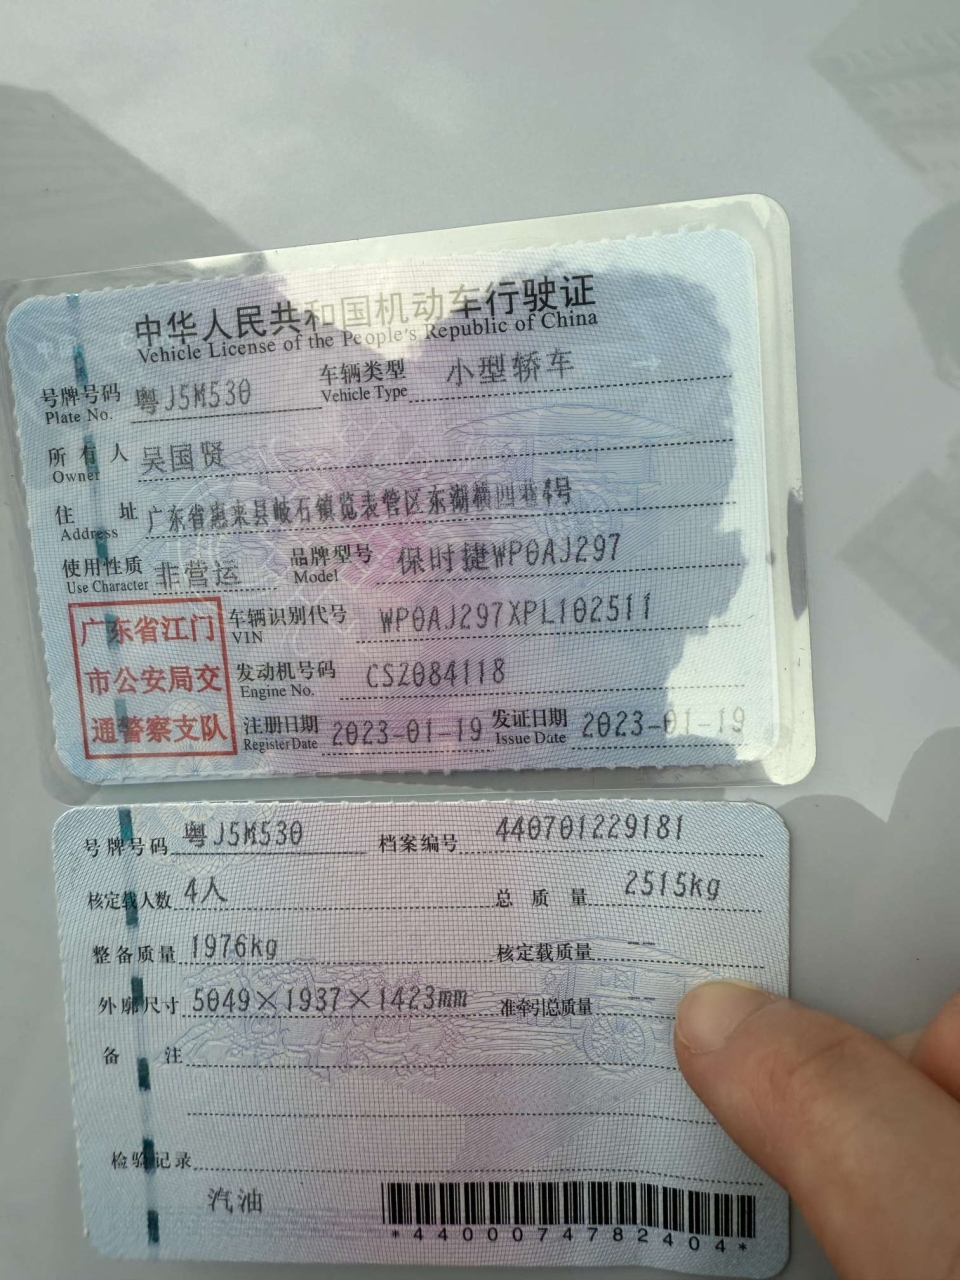 中华人民共和国机动车行驶证
Vehicle License of the People's Republic of China
号牌号码 Plate No. 粤J5M530 车辆类型 Vehicle Type 小型轿车
所有人 Owner 吴国贤
住址 Address 广东省惠来县岐石镇览表管区东湖横四巷4号
使用性质 Use Character 非营运 品牌型号 Model 保时捷WP0AJ297
车辆识别代号 VIN WP0AJ297XPL102511
发动机号码 Engine No. CSZ084118
注册日期 Register Date 2023-01-19 发证日期 Issue Date 2023-01-19
广东省江门
市公安局交
通警察支队
号牌号码 粤J5M530 档案编号 440701229181
核定载人数 4人 总质量 2515kg
整备质量 1976kg 核定载质量 --
外廓尺寸 5049×1937×1423mm 准牵引总质量 --
备注
检验记录
汽油
*4400074782404*